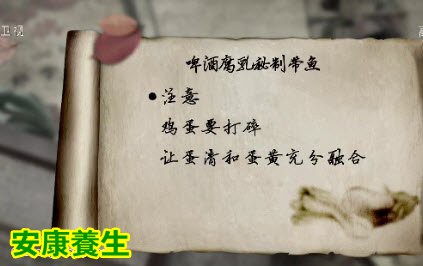 卫视
啤酒腐乳秘制带鱼
●注意
鸡蛋要打碎
让蛋清和蛋黄充分融合
安康養生